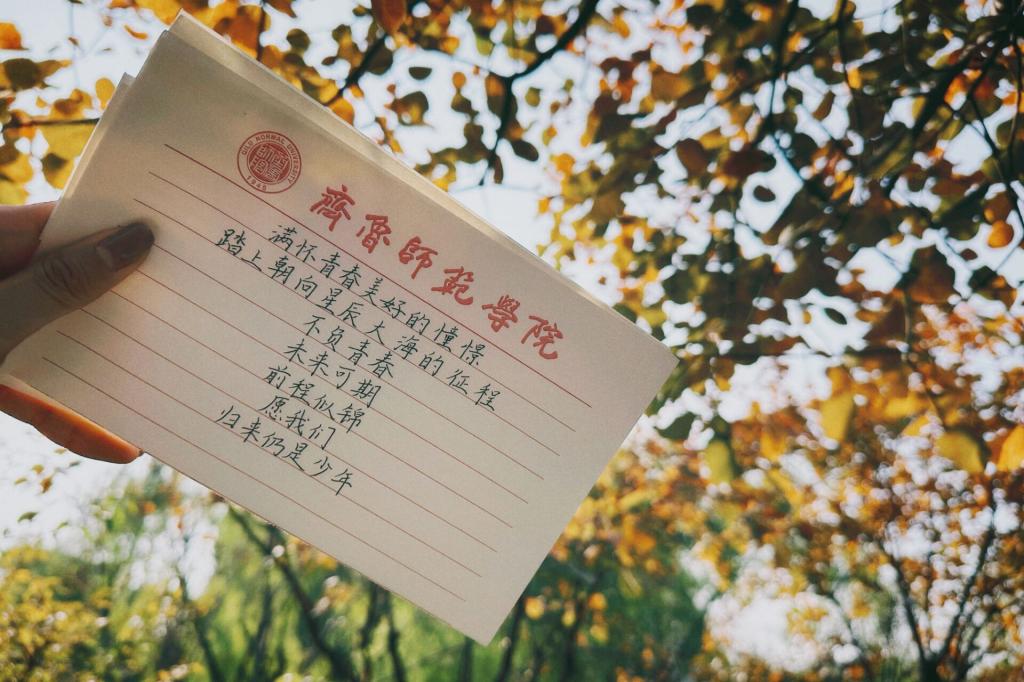 QILU NORMAL UNIVERSITY
1948
齊魯師範學院
满怀青春美好的憧憬
踏上朝向星辰大海的征程
不负青春
未来可期
前程似锦
愿我们
归来仍是少年